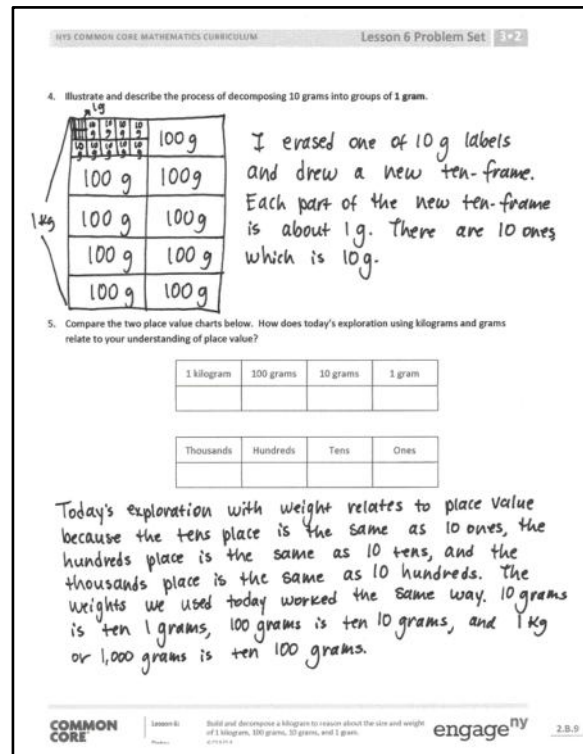 NYS COMMON CORE MATHEMATICS CURRICULUM
Lesson 6 Problem Set
3•2
4. Illustrate and describe the process of decomposing 10 grams into groups of 1 gram.
1g
10 g 10 g 10 g 10 g
100 g
10 g 10 g 10 g 10 g 10 g
100 g 100 g
1 kg
100 g 100 g
100 g 100 g
100 g 100 g
I erased one of 10 g labels
and drew a new ten-frame.
Each part of the new ten-frame
is about 1g. There are 10 ones
which is 10g.
5. Compare the two place value charts below. How does today's exploration using kilograms and grams
relate to your understanding of place value?
1 kilogram 100 grams 10 grams 1 gram
Thousands Hundreds Tens Ones
Today's exploration with weight relates to place value
because the tens place is the same as 10 ones, the
hundreds place is the same as 10 tens, and the
thousands place is the same as 10 hundreds. The
weights we used today worked the same way. 10 grams
is ten 1 grams, 100 grams is ten 10 grams, and 1 kg
or 1,000 grams is ten 100 grams.
COMMON
CORE
Lesson 6:
Build and decompose a kilogram to reason about the size and weight
of 1 kilogram, 100 grams, 10 grams, and 1 gram.
engage ny
2.B.9